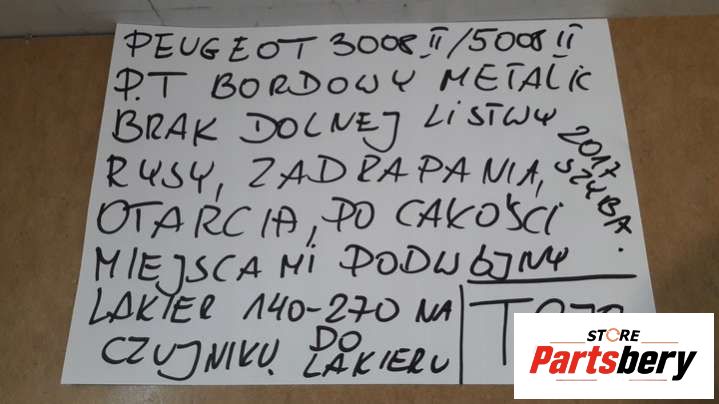 PEUGEOT 3008 II/5008 II
P.T BORDOWY METALIC
BRAK DOLNEJ LISTWY
RYSY, ZADRAPANIA,
2017 SZYBA.
OTARCIA, PO CAŁOŚCI
MIEJSCAMI PODWÓJNY
LAKIER 140-270 NA
CZUJNIKU DO LAKIERU
STORE
Partsbery